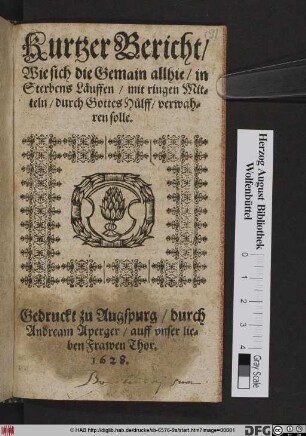 Kurtzer Bericht/
Wie sich die Gemain allhie/ in
Sterbens Läuffen/ mit ringen Mit-
teln/ durch Gottes Hülff/ verwah-
ren solle.
Gedruckt zu Augspurg/ durch
Andream Aperger/ auff vnser lie-
ben Frawen Thor.
1628.
Herzog August Bibliothek
Wolfenbüttel
0
1
2
3
4
5
Gray Scale
© HAB http://diglib.hab.de/drucke/xb-6576-9s/start.htm?image=00001
DFG